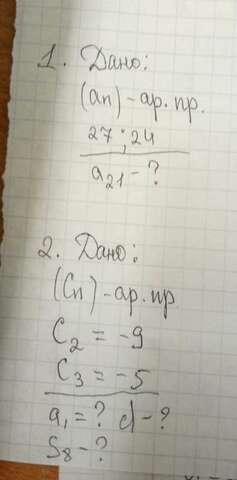 1. Дано:
(an) - ар. пр.
27; 24
a21 - ?
2. Дано:
(Cn) - ар. пр.
C2 = -9
C3 = -5
a1 = ? d - ?
S8 - ?